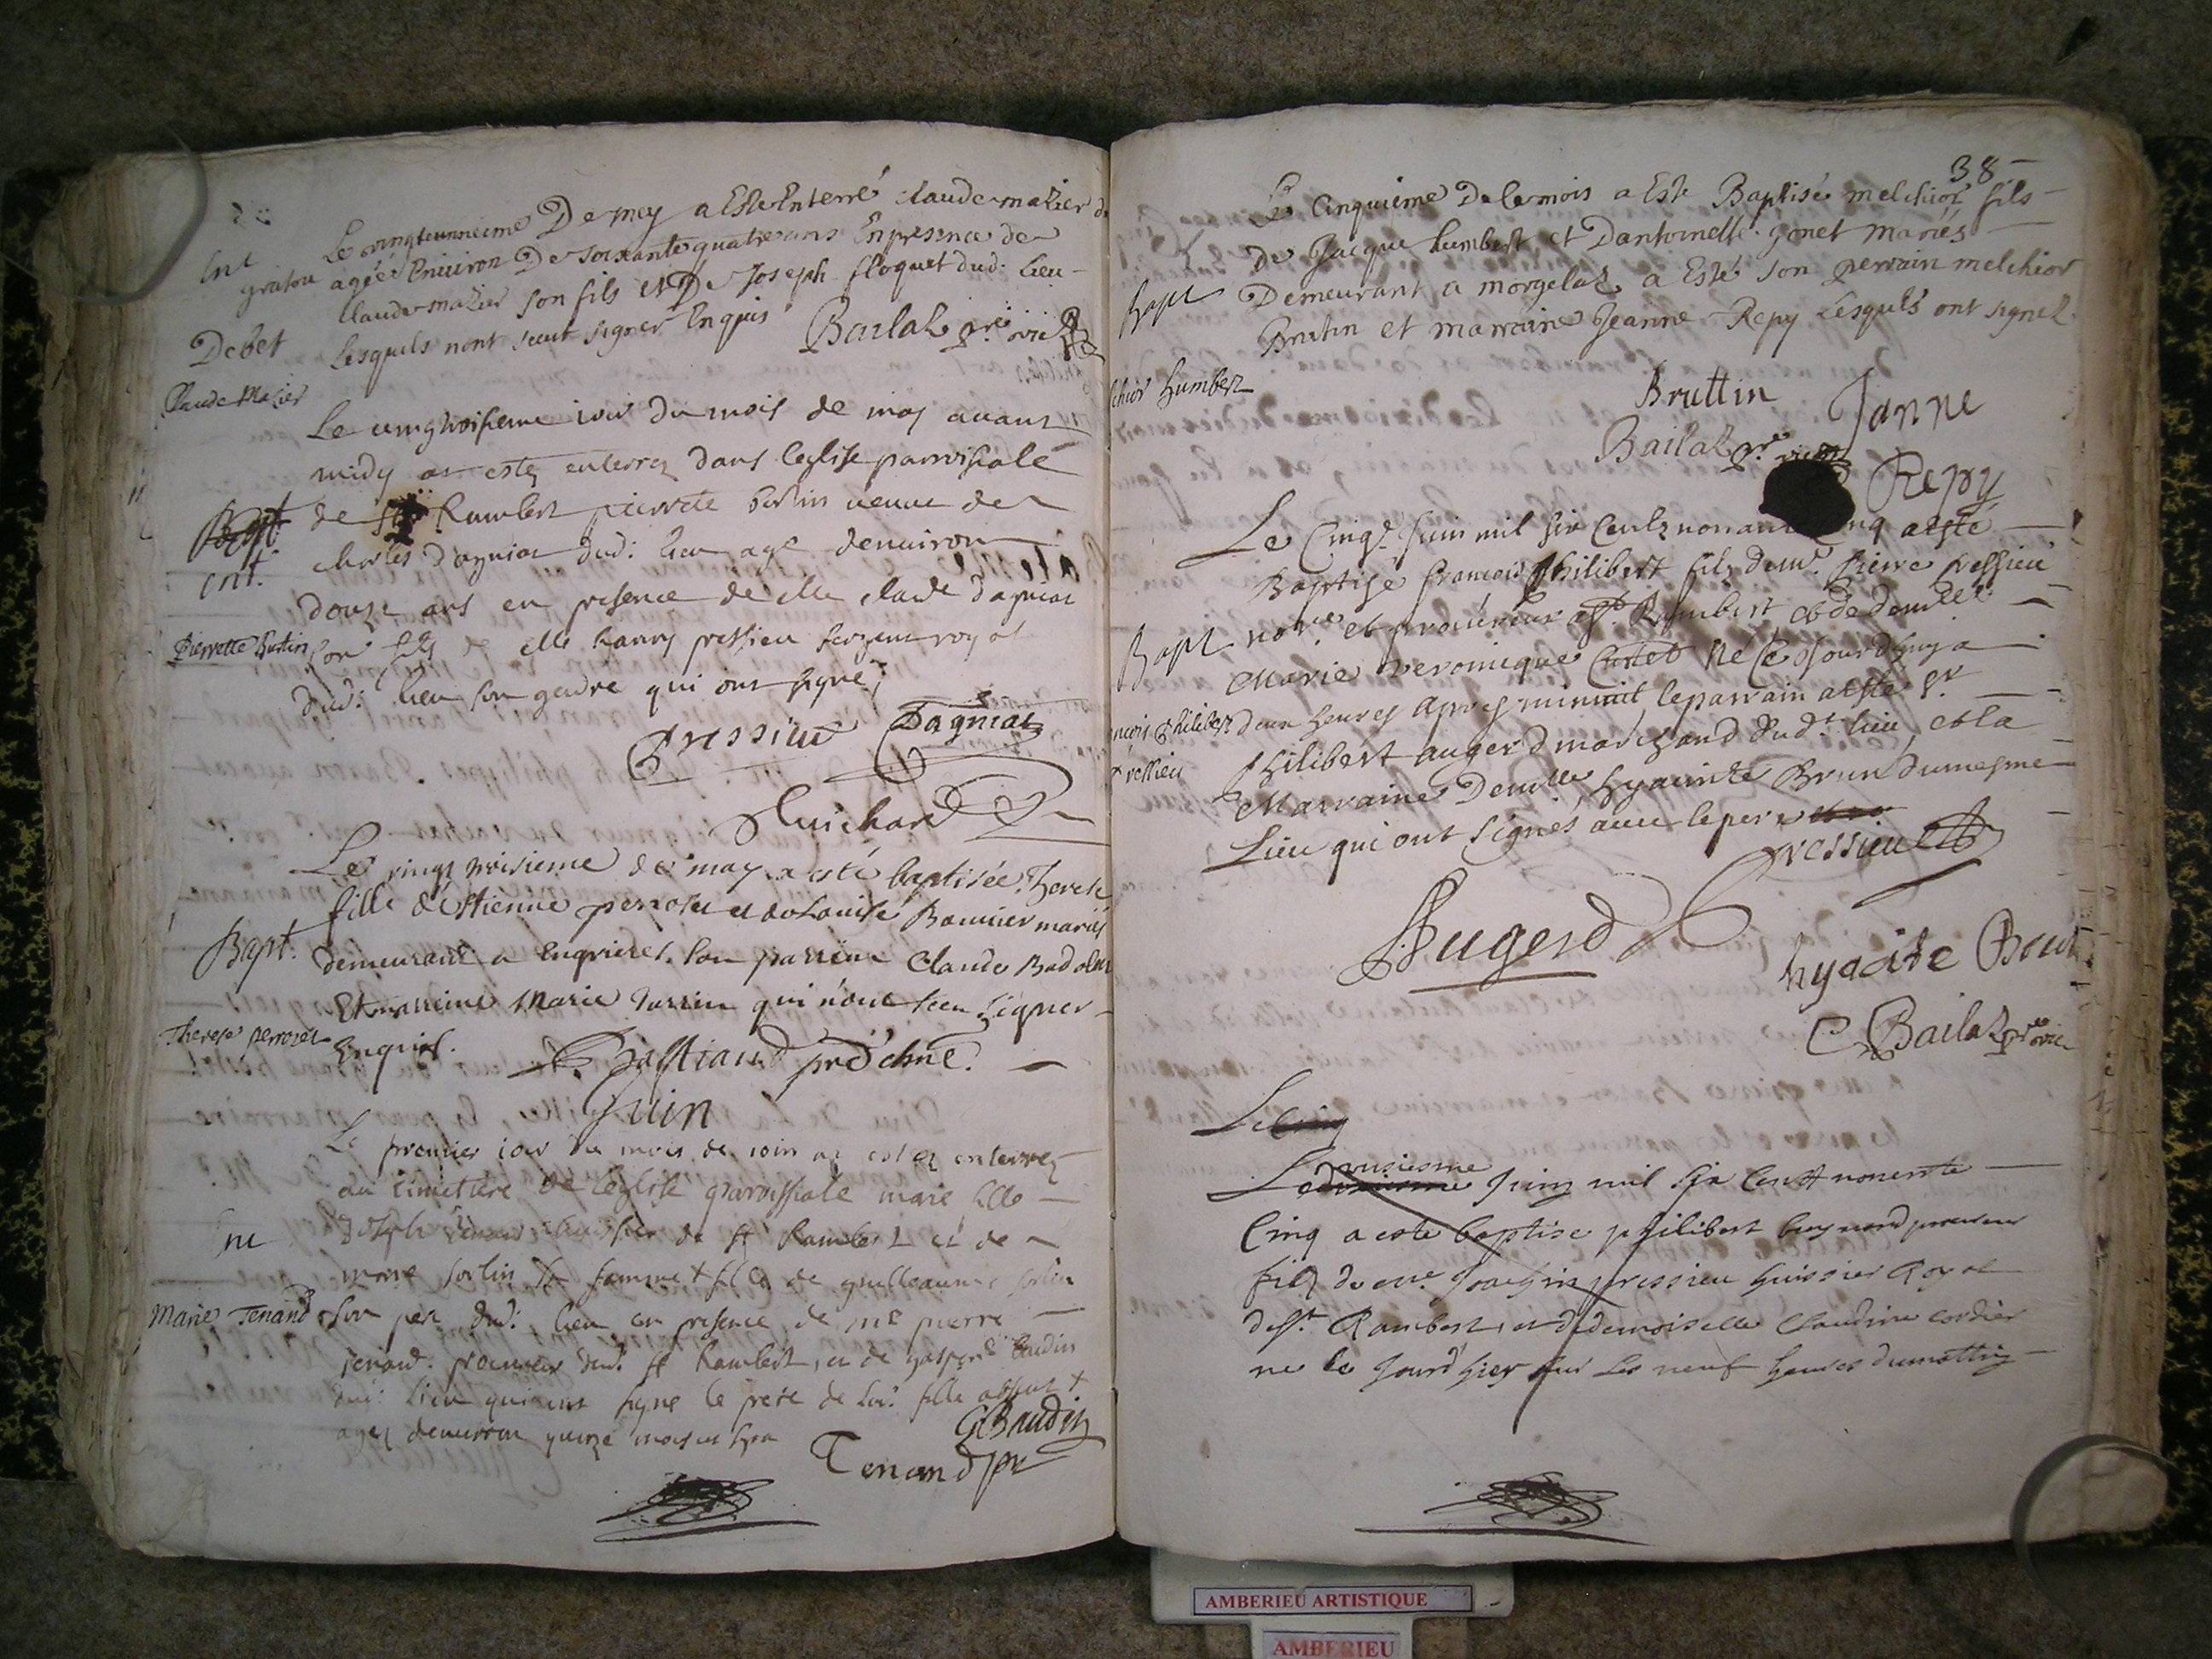 Ent
Le vingteunnieme De mey a Este Enterré claude mazier de
grattou agée Enuiron De soixante quatre ans En presence de
Claude mazier son fils et De Joseph floquet dud. lieu
Debet
Lesquels nont sceut signer Enquis Bailat pre vic
Claude Mazier
Le uingtroisieme iour du mois de may auant
midy at estez enterrez dans leglise parroisiale
Bapt
de st Rambert pierrete bertin ueuue de
Ent.
charles dagniat dud: lieu age denuiron
douze ans en presence de claude dagniat
Pierrette Bertin
son fils pressieu sergent royal
dud: lieu son gendre qui ont signé;
Pressieu Dagniat
Guichard
Le vingt troisieme de may a esté baptisée Therese
fille d'Estienne perrozet et de Louise Bonnier mariés
Bapt.
demeurant a Engrieres. son parrein Claude Badolat
Et marreine Marie Jarrin qui n'ont sceu signer
Therese perrozet
Enquis. Bastiand pre
Juin
Le premier iour du mois de ioin at estez enterrez
au cimetiere de leglise parroissiale marie fille
Ent
Joseph tenand huissier de st Rambert et de
marie sorlin sa femme + fille de guilleaume sorlin
Marie Tenand
son pere dud: lieu en presence de me pierre
tenand procureur dud. st Rambert, et de gaspard baudin
dud: lieu qui ont signe le pere de lad. fille absent +
agez denuiron quinze mois
GBaudin
Tenand pr
38
Le Cinquieme De ce mois a Este Baptisé melchior fils
de Jacque humbert et Dantoinette gonet mariés
Bapt
Demeurant a morgelas a Esté son perrain melchior
Brutin et marraine Jeanne Repy Lesquels ont signez
chior humbert
Bruttin Janne
Bailat pre vic
Repy
Le Cinqe. Juin mil six Centz nonante cinq a esté
Baptisé francois Philibert fils de mr. Pierre Pressieu
Bapt
nore. et procureur a St. Rambert et de demlle.
Marie veronicque Cortet né Ce Jourdhuy a
ncois Philibert
deux heures apres minuit, le parrain a esté Sr.
Pressieu
Philibert augerd marchand dud.t lieu, et la
Marraine Demlle hyacinte Brun du mesme
Lieu qui ont signés auec le pere
Pressieu
Augerd
hyacite Brun
C Bailat pre vic
Le Cinq
Le onziesme Juin mil six Cents nonente
Cinq a este baptise philibert
filz de me Joachin pressieu huissier Royal
de st. Rambert, et de demoiselle Claudine cordier
ne le Jourd'hier sur les neuf heures du mattin
AMBERIEU ARTISTIQUE
AMBERIEU